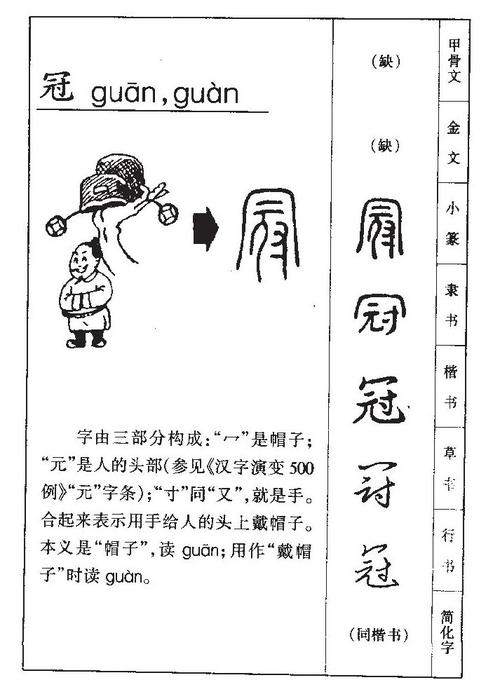 冠 guān, guàn
字由三部分构成：“冖”是帽子；
“元”是人的头部（参见《汉字演变 500
例》“元”字条）；“寸”同“又”，就是手。
合起来表示用手给人的头上戴帽子。
本义是“帽子”，读 guān；用作“戴帽
子”时读 guàn。
（缺） 甲骨文
（缺） 金文
冠 小篆
冠 隶书
冠 楷书
冠 草书
冠 行书
（同楷书） 简化字